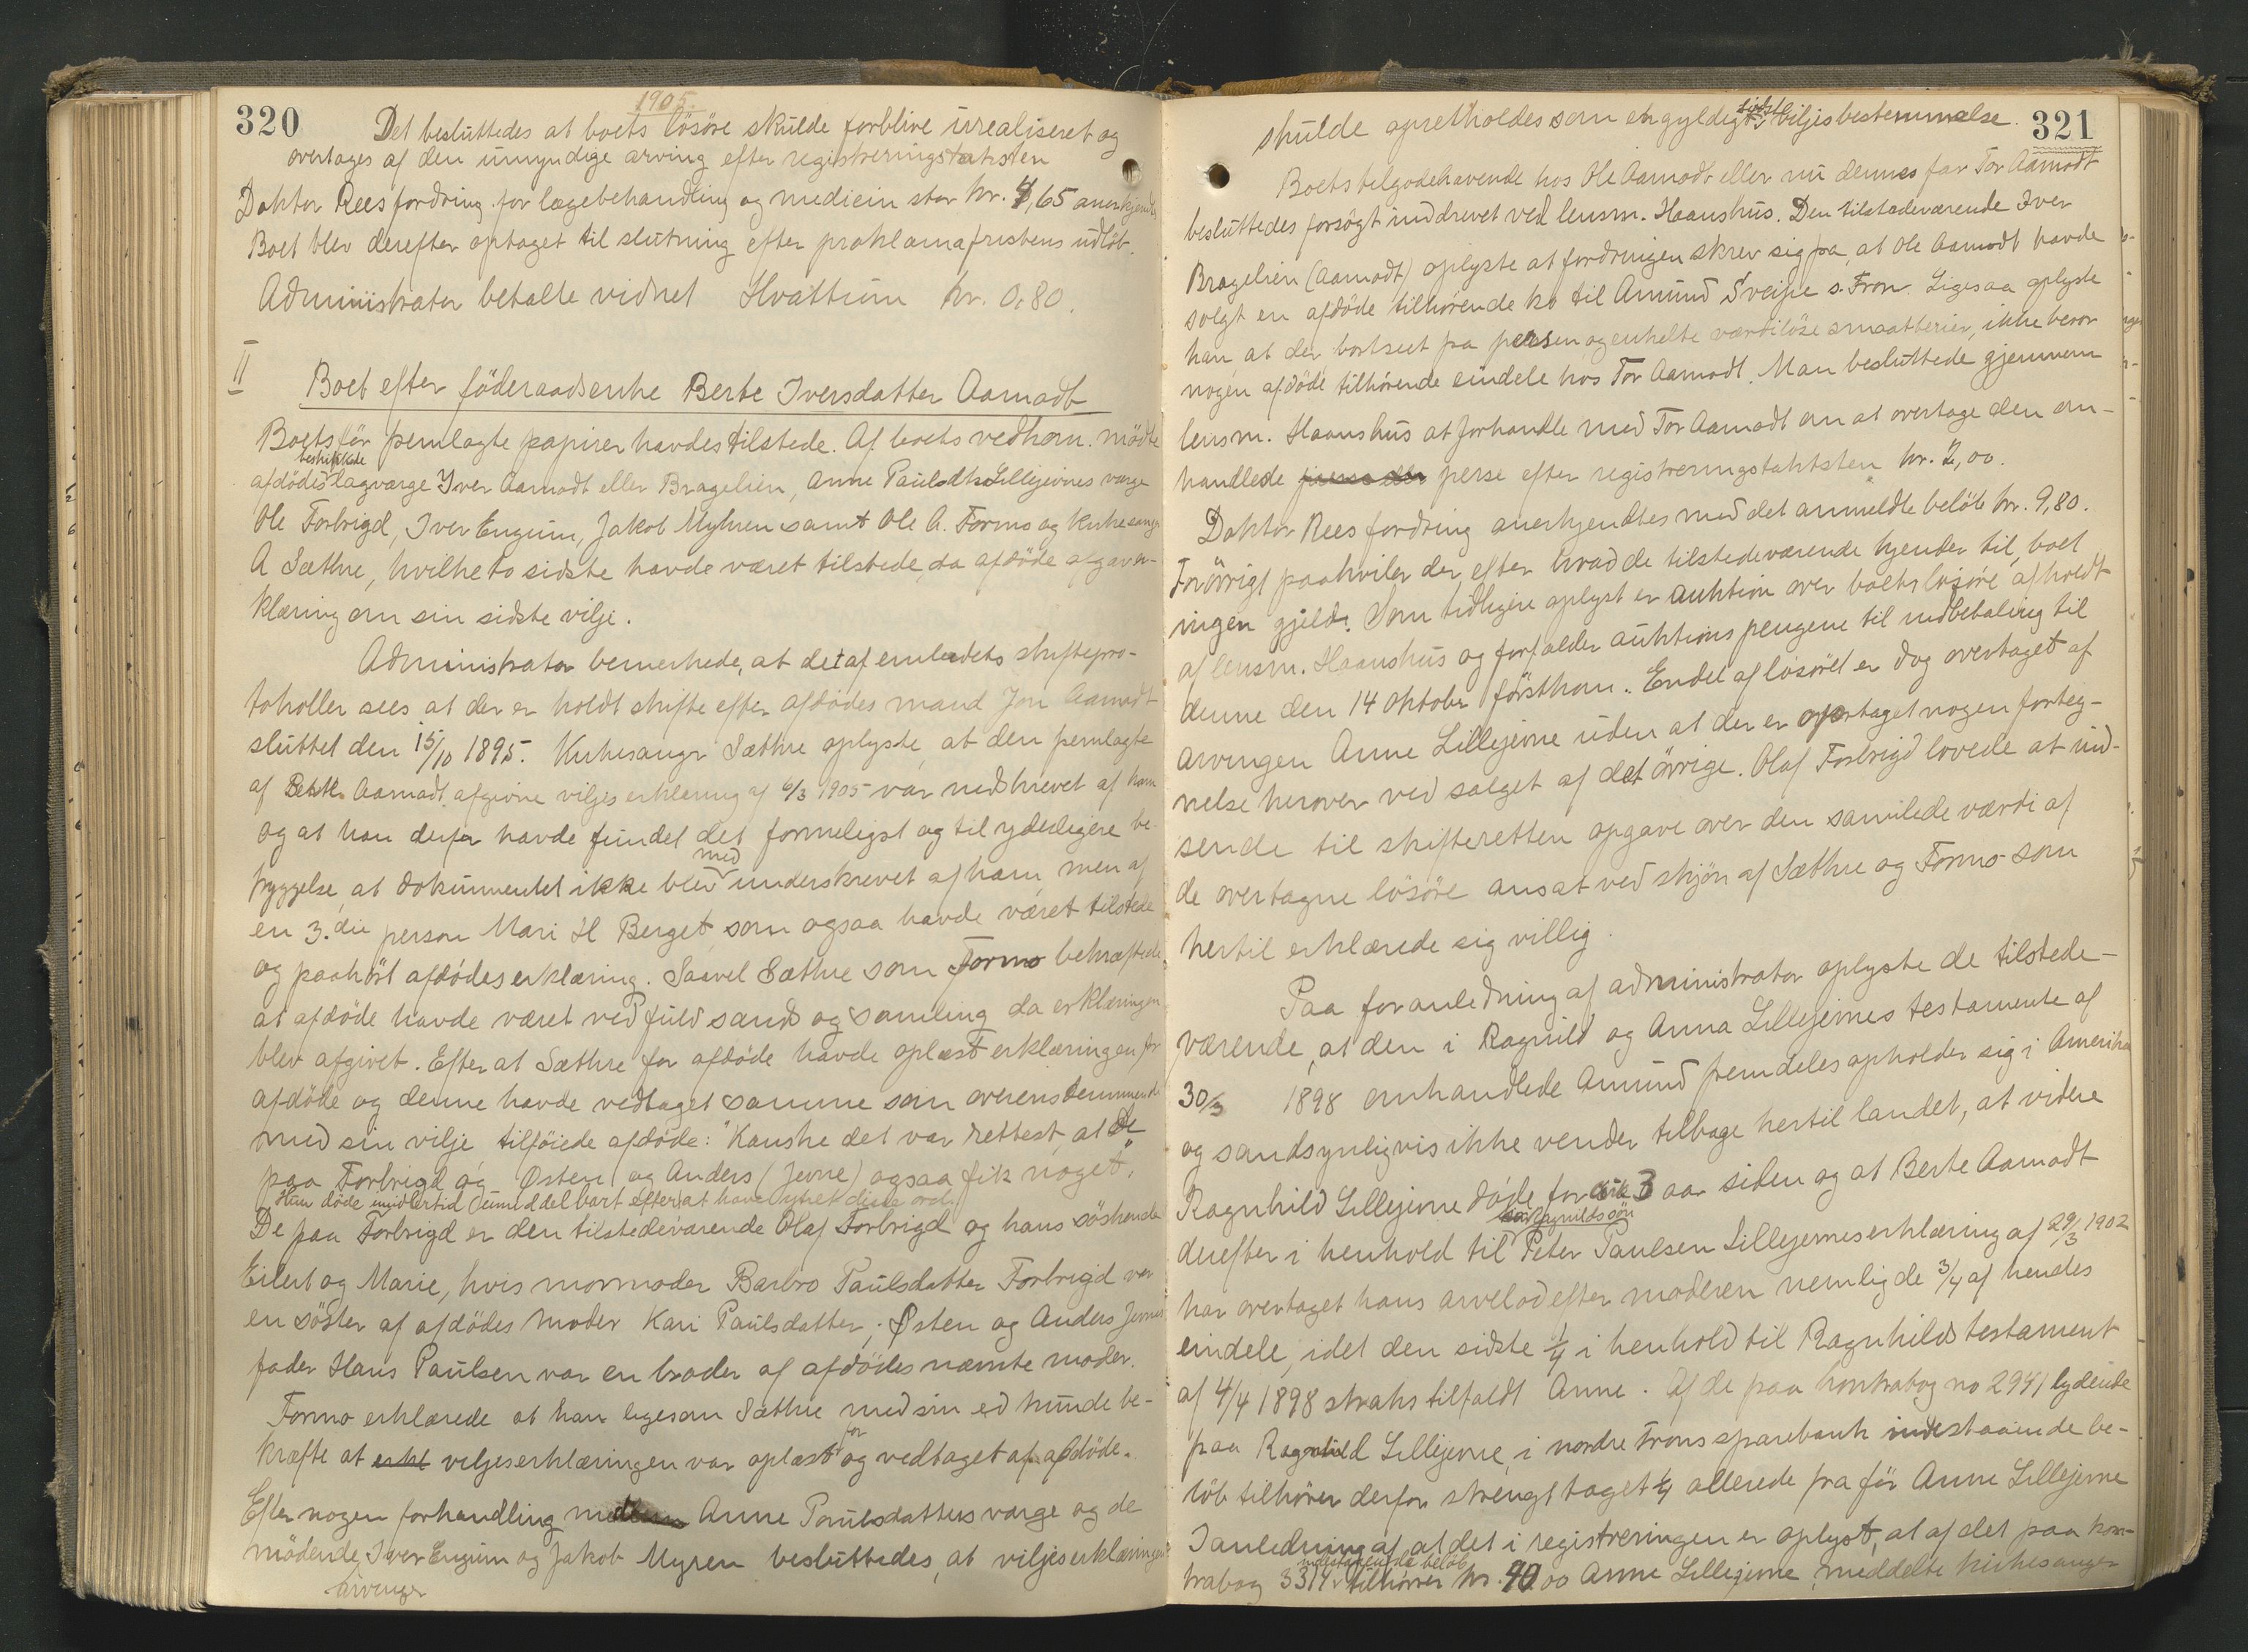 320
1905.
Det besluttedes at boets lösöre skulde forblive urealiseret og
overtages af den umyndige arving efter registreringstaksten
Doktor Rees fordring for lægebehandling og medicin stor kr. 4,65 anerkjendt
Boet blev derefter optaget til slutning efter proklamafristens udlöb.
Administrator betalte vidnet Hvattum kr. 0,80.
II
Boet efter föderaadsenke Berte Iversdatter Aamodt
Boets för fremlagte papirer havdes tilstede. Af boets vedkom. mödte
beskikkede
afdödes lagværge Iver Aamodt eller Bragelien, Anne Paulsdtr Lillejevnes værge
Ole Forbrigd, Iver Engum, Jakob Myhren samt Ole A. Formo og kirkesanger
A Sæthre, hvilke to sidste havde været tilstede, da afdöde afgav er-
klæring om sin sidste vilje.
Administrator bemerkede, at det af embedets skiftepro-
tokoller sees at der er holdt skifte efter afdödes mand Jon Aamodt
sluttet den 15/10 1895. Kirkesanger Sæthre oplyste, at den fremlagte
af Berte Aamodt afgivne viljeserklæring af 6/3 1905 var nedskrevet af ham
og at han derfor havde fundet det formeligst og til yderligere be-
med
tryggelse, at dokumentet ikke blev underskrevet af ham, men af
en 3.die person Mari H Berget som ogsaa havde været tilstede
og paahört afdödes erklæring. Saavel Sæthre som Formo bekræftede
at afdöde havde været ved fuld sands og samling da erklæringen
blev afgivet. Efter at Sæthre for afdöde havde oplæst erklæringen for
afdöde og denne havde vedtaget samme som overensstemmende
med sin vilje tilföiede afdöde: "Kanske det var rettest, at De
paa Forbrigd og Østen og Anders (Jevne) ogsaa fik noget".
Hun döde imidlertid umiddelbart efter at have ytret disse ord.
De paa Forbrigd er den tilstedeværende Olaf Forbrigd og hans söskende
Eilert og Marie, hvis mormoder Barbro Paulsdatter Forbrigd var
en söster af afdödes moder Kari Paulsdatter; Østen og Anders Jevnes
fader Hans Paulsen var en broder af afdödes nævnte moder.
Formo erklærede at han ligesom Sæthre med sin ed kunde be-
for
kræfte at erkl viljeserklæringen var oplæst og vedtaget af afdöde.
Efter nogen forhandling mellem Anne Paulsdatters værge og de
mödende Iver Engum og Jakob Myren besluttedes, at viljeserklæringen
arvinger
321
sidste
skulde opretholdes som en gyldig viljesbestemmelse.
Boets tilgodehavende hos Ole Aamodt eller nu dennes far Tor Aamodt
besluttedes forsögt inddrevet ved lensm. Haanshus. Den tilstedeværende Iver
Bragelien (Aamodt) oplyste at fordringen skrev sig fra, at Ole Aamodt havde
solgt en afdöde tilhörende ko til Amund Sveipe s. Fron. Ligesaa oplyste
han, at der bortseet fra persen og enkelte værdilöse smaatterier, ikke beror
nogen afdöde tilhörende eiendele hos Tor Aamodt. Man besluttede gjennem
lensm. Haanshus at forhandle med Tor Aamodt om at overtage den om-
handlede perse efter registreringstaksten kr. 2,00.
Doktor Rees fordring anerkjendtes med det anmeldte belöb kr. 9,80.
Forövrigt paahviler der, efter hvad de tilstedeværende kjender til, boet
ingen gjeld. Som tidligere oplyst er auktion over boets lösöre afholdt
af lensm. Haanshus og forfalder auktionspengene til indbetaling til
denne den 14 oktober förstkom. Endel af lösöret er dog overtaget af
arvingen Anne Lillejevne uden at der er optaget nogen forteg-
nelse herover ved salget af det övrige. Olaf Forbrigd lovede at ind-
sende til skifteretten opgave over den samlede værdi af
de overtagne lösöre ansat ved skjön af Sæthre og Formo som
hertil erklærede sig villig.
Paa foranledning af administrator oplyste de tilstede-
værende, at den i Ragnild og Anna Lillejevnes testamente af
30/3 1898 omhandlede Amund fremdeles opholder sig i Amerika
og sandsynligvis ikke vender tilbage hertil landet, at videre
Ragnhild Lillejevne döde for 3 aar siden og at Berte Aamodt
Ragnilds sön
derefter i henhold til Peter Paulsen Lillejevnes erklæring af 29/3 1902
har overtaget hans arvelod efter moderen nemlig de 3/4 af hendes
eiendele, idet den sidste 1/4 i henhold til Ragnhilds testament
af 4/4 1898 straks tilfaldt Anne. Af de paa kontrabog no 2941 lydende
paa Ragnhild Lillejevne, i nordre Frons sparebank indestaaende be-
löb tilhörer derfor strengt taget 1/4 allerede fra för Anne Lillejevne
I anledning af at det i registreringen er oplyst, at af det paa kon-
indestaaende belöb
trabog 3314 tilhörer kr. 40.00 Anne Lillejevne, meddelte kirkesanger